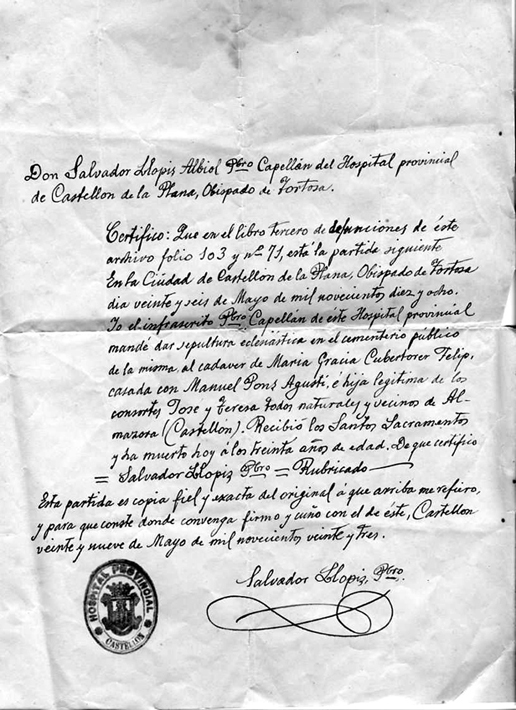 Don Salvador Llopis Albiol Pbro Capellán del Hospital provincial
de Castellon de la Plana, Obispado de Tortosa.
Certifico: Que en el libro tercero de defunciones de éste
archivo folio 103 y nº 71, está la partida siguiente
En la Ciudad de Castellon de la Plana, Obispado de Tortosa
dia veinte y seis de Mayo de mil novecientos diez y ocho.
Yo el infrascrito Pbro. Capellán de éste Hospital provincial
mandé dar sepultura eclesiástica en el cementerio público
de la misma, al cadaver de Maria Gracia Cubertorer Felip,
casada con Manuel Pons Agusti, é hija legitima de los
consortes Jose y Teresa todos naturales y vecinos de Al-
mazora (Castellón). Recibió los Santos Sacramentos
y ha muerto hoy á los treinta años de edad. De que certifico
= Salvador Llopis Pbro = Rubricado
Esta partida es copia fiel y exacta del original á que arriba me refiero,
y para que conste donde convenga firmo y cuño con el de éste, Castellon
veinte y nueve de Mayo de mil novecientos veinte y tres.
Salvador Llopis, Pbro.
HOSPITAL PROVINCIAL
CASTELLON